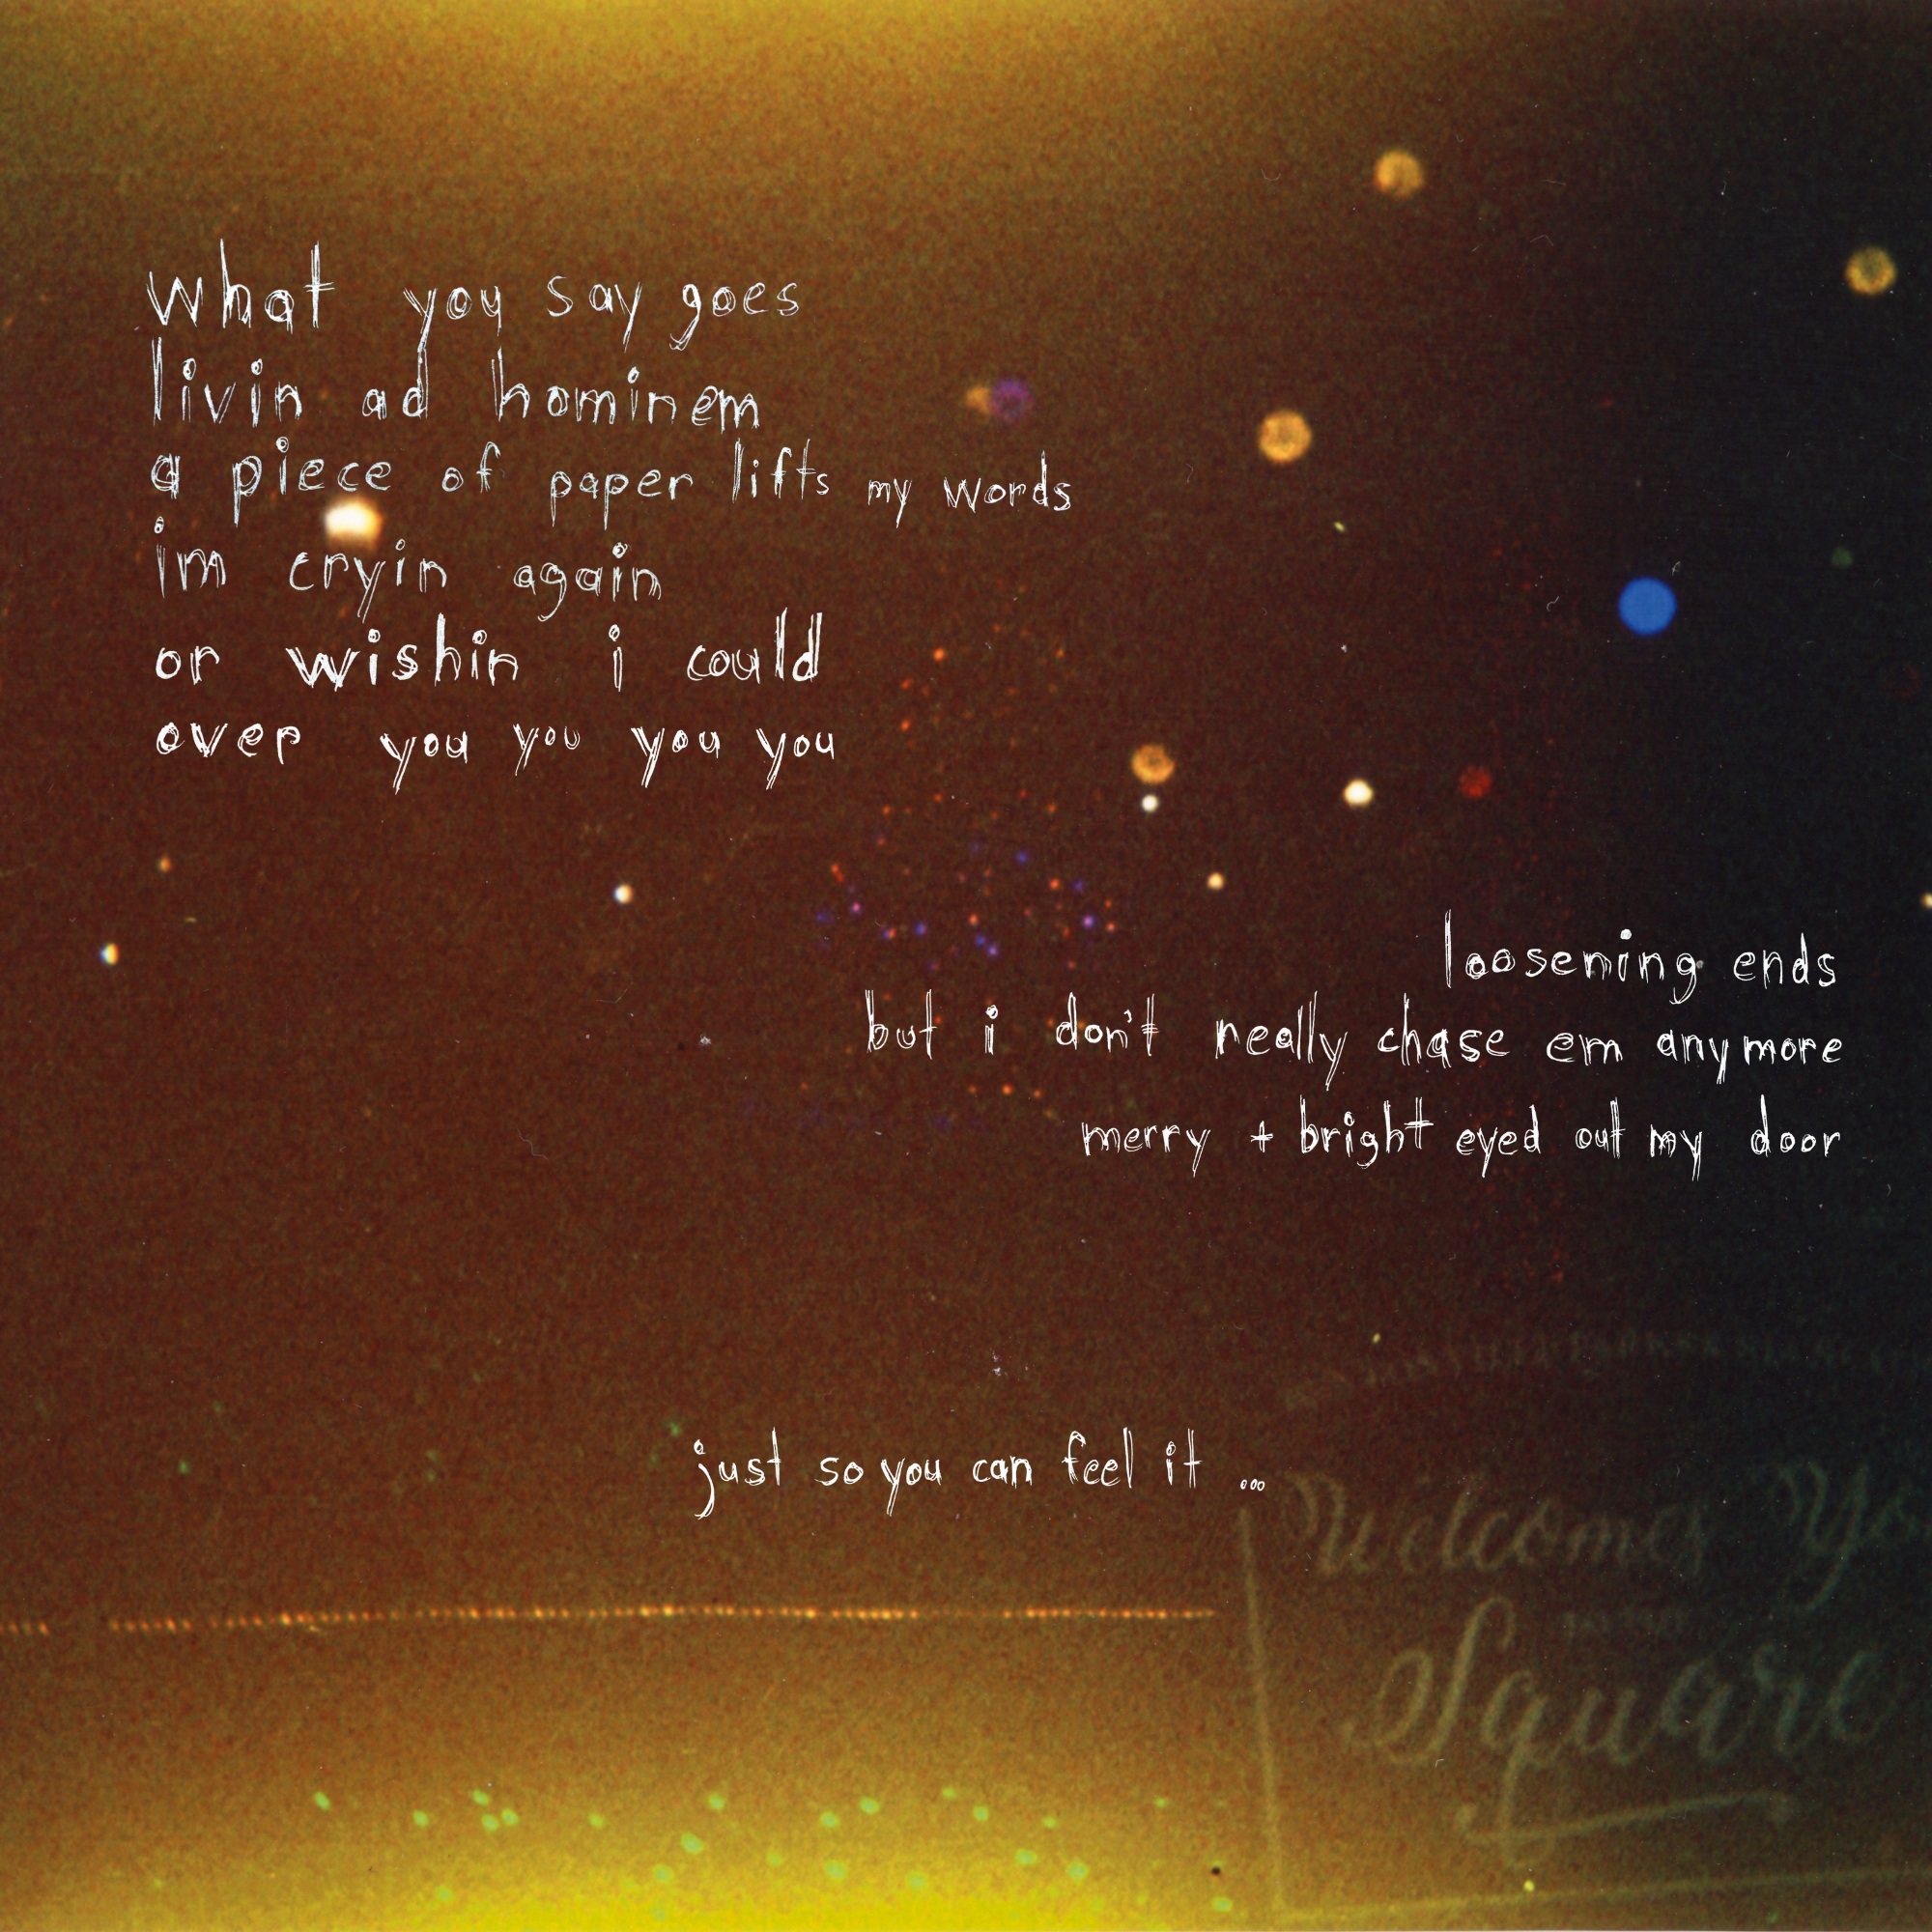 what you say goes
livin ad hominem
a piece of paper lifts my words
im cryin again
or wishin i could
over you you you you
loosening ends
but i don't really chase em anymore
merry + bright eyed out my door
just so you can feel it ...
Welcomes
Square